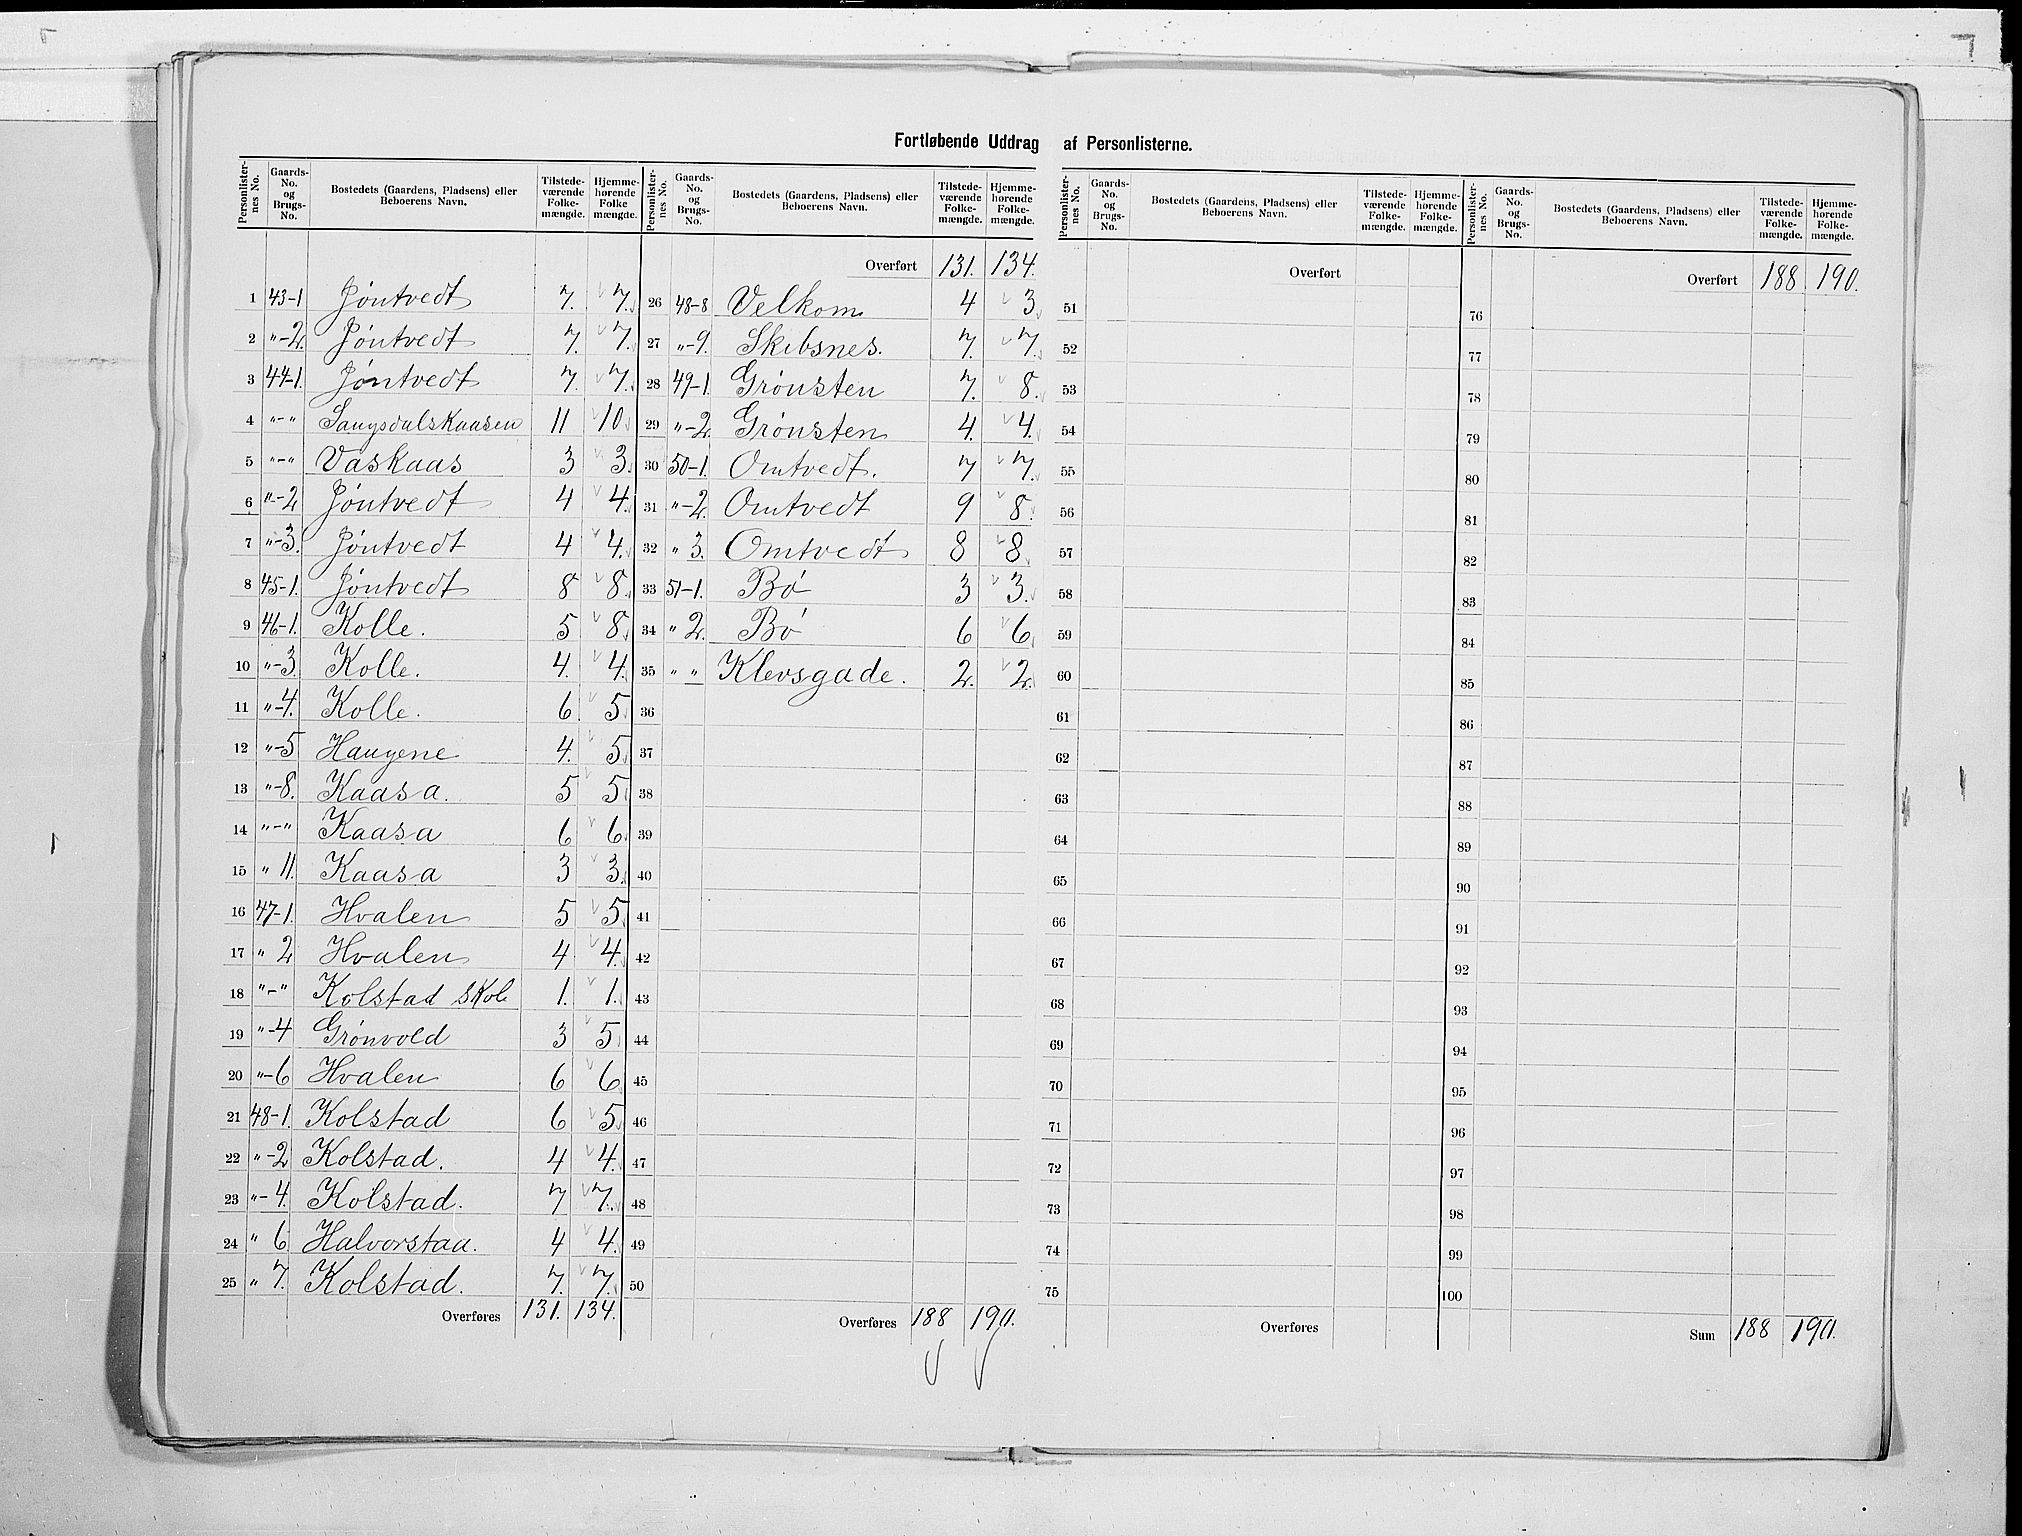 Fortløbende Uddrag af Personlisterne.
Personlister-nes No. | Gaards-No. og Brugs-No. | Bostedets (Gaardens, Pladsens) eller Beboerens Navn. | Tilstede-værende Folke-mængde. | Hjemme-hørende Folke mængde.
1 43-1 Jøntvedt 7. 7.
2 "-2. Jøntvedt 7. 7.
3 44-1. Jøntvedt 7. 7.
4 "-" Saugsdalskaasen 11 10
5 "-" Vaskaas 3 3.
6 "-2 Jøntvedt 4 4.
7 "-3. Jøntvedt 4 4.
8 45-1. Jøntvedt 8 8.
9 46-1. Kolle. 5 8.
10 "-3. Kolle. 4. 4.
11 "-4. Kolle. 6. 5
12 "-5 Haugene 4. 5
13 "-8. Kaasa. 5 5
14 "-" Kaasa 6 6.
15 " 11. Kaasa 3 3.
16 47-1. Hvalen 5 5.
17 " 2 Hvalen 4 4.
18 "-" Kolstad skole 1. 1.
19 "-4 Grønvold 3 5
20 "-6 Hvalen 6 6
21 48-1. Kolstad 6 5
22 "-2 Kolstad. 4 4.
23 "-4. Kolstad. 7 7.
24 " 6 Halvorstaa. 4 4.
25 " 7. Kolstad. 7. 7.
Overføres 131. 134.
Personlister-nes No. | Gaards-No. og Brugs-No. | Bostedets (Gaardens, Pladsens) eller Beboerens Navn. | Tilstede-værende Folke-mængde. | Hjemme-hørende Folke-mængde.
Overført 131. 134.
26 48-8 Velkom 4 3.
27 "-9. Skibsnes. 7. 7.
28 49-1. Grønsten 7. 8.
29 "-2. Grønsten 4. 4.
30 50-1. Omtvedt. 7 7.
31 "-2. Omtvedt 9 8.
32 " 3. Omtvedt 8 8
33 51-1. Bø 3 3.
34 " 2. Bø 6 6.
35 " " Klevsgade. 2. 2.
36
37
38
39
40
41
42
43
44
45
46
47
48
49
50
Overføres 188 190.
Personlister-nes No. | Gaards-No. og Brugs-No. | Bostedets (Gaardens, Pladsens) eller Beboerens Navn. | Tilstede-værende Folke-mængde. | Hjemme-hørende Folke-mængde.
Overført
51
52
53
54
55
56
57
58
59
60
61
62
63
64
65
66
67
68
69
70
71
72
73
74
75
Overføres
Personlister-nes No. | Gaards-No. og Brugs-No. | Bostedets (Gaardens, Pladsens) eller Beboerens Navn. | Tilstede-værende Folke-mængde. | Hjemme-hørende Folke-mængde.
Overført 188 190.
76
77
78
79
80
81
82
83
84
85
86
87
88
89
90
91
92
93
94
95
96
97
98
99
100
Sum 188 190.